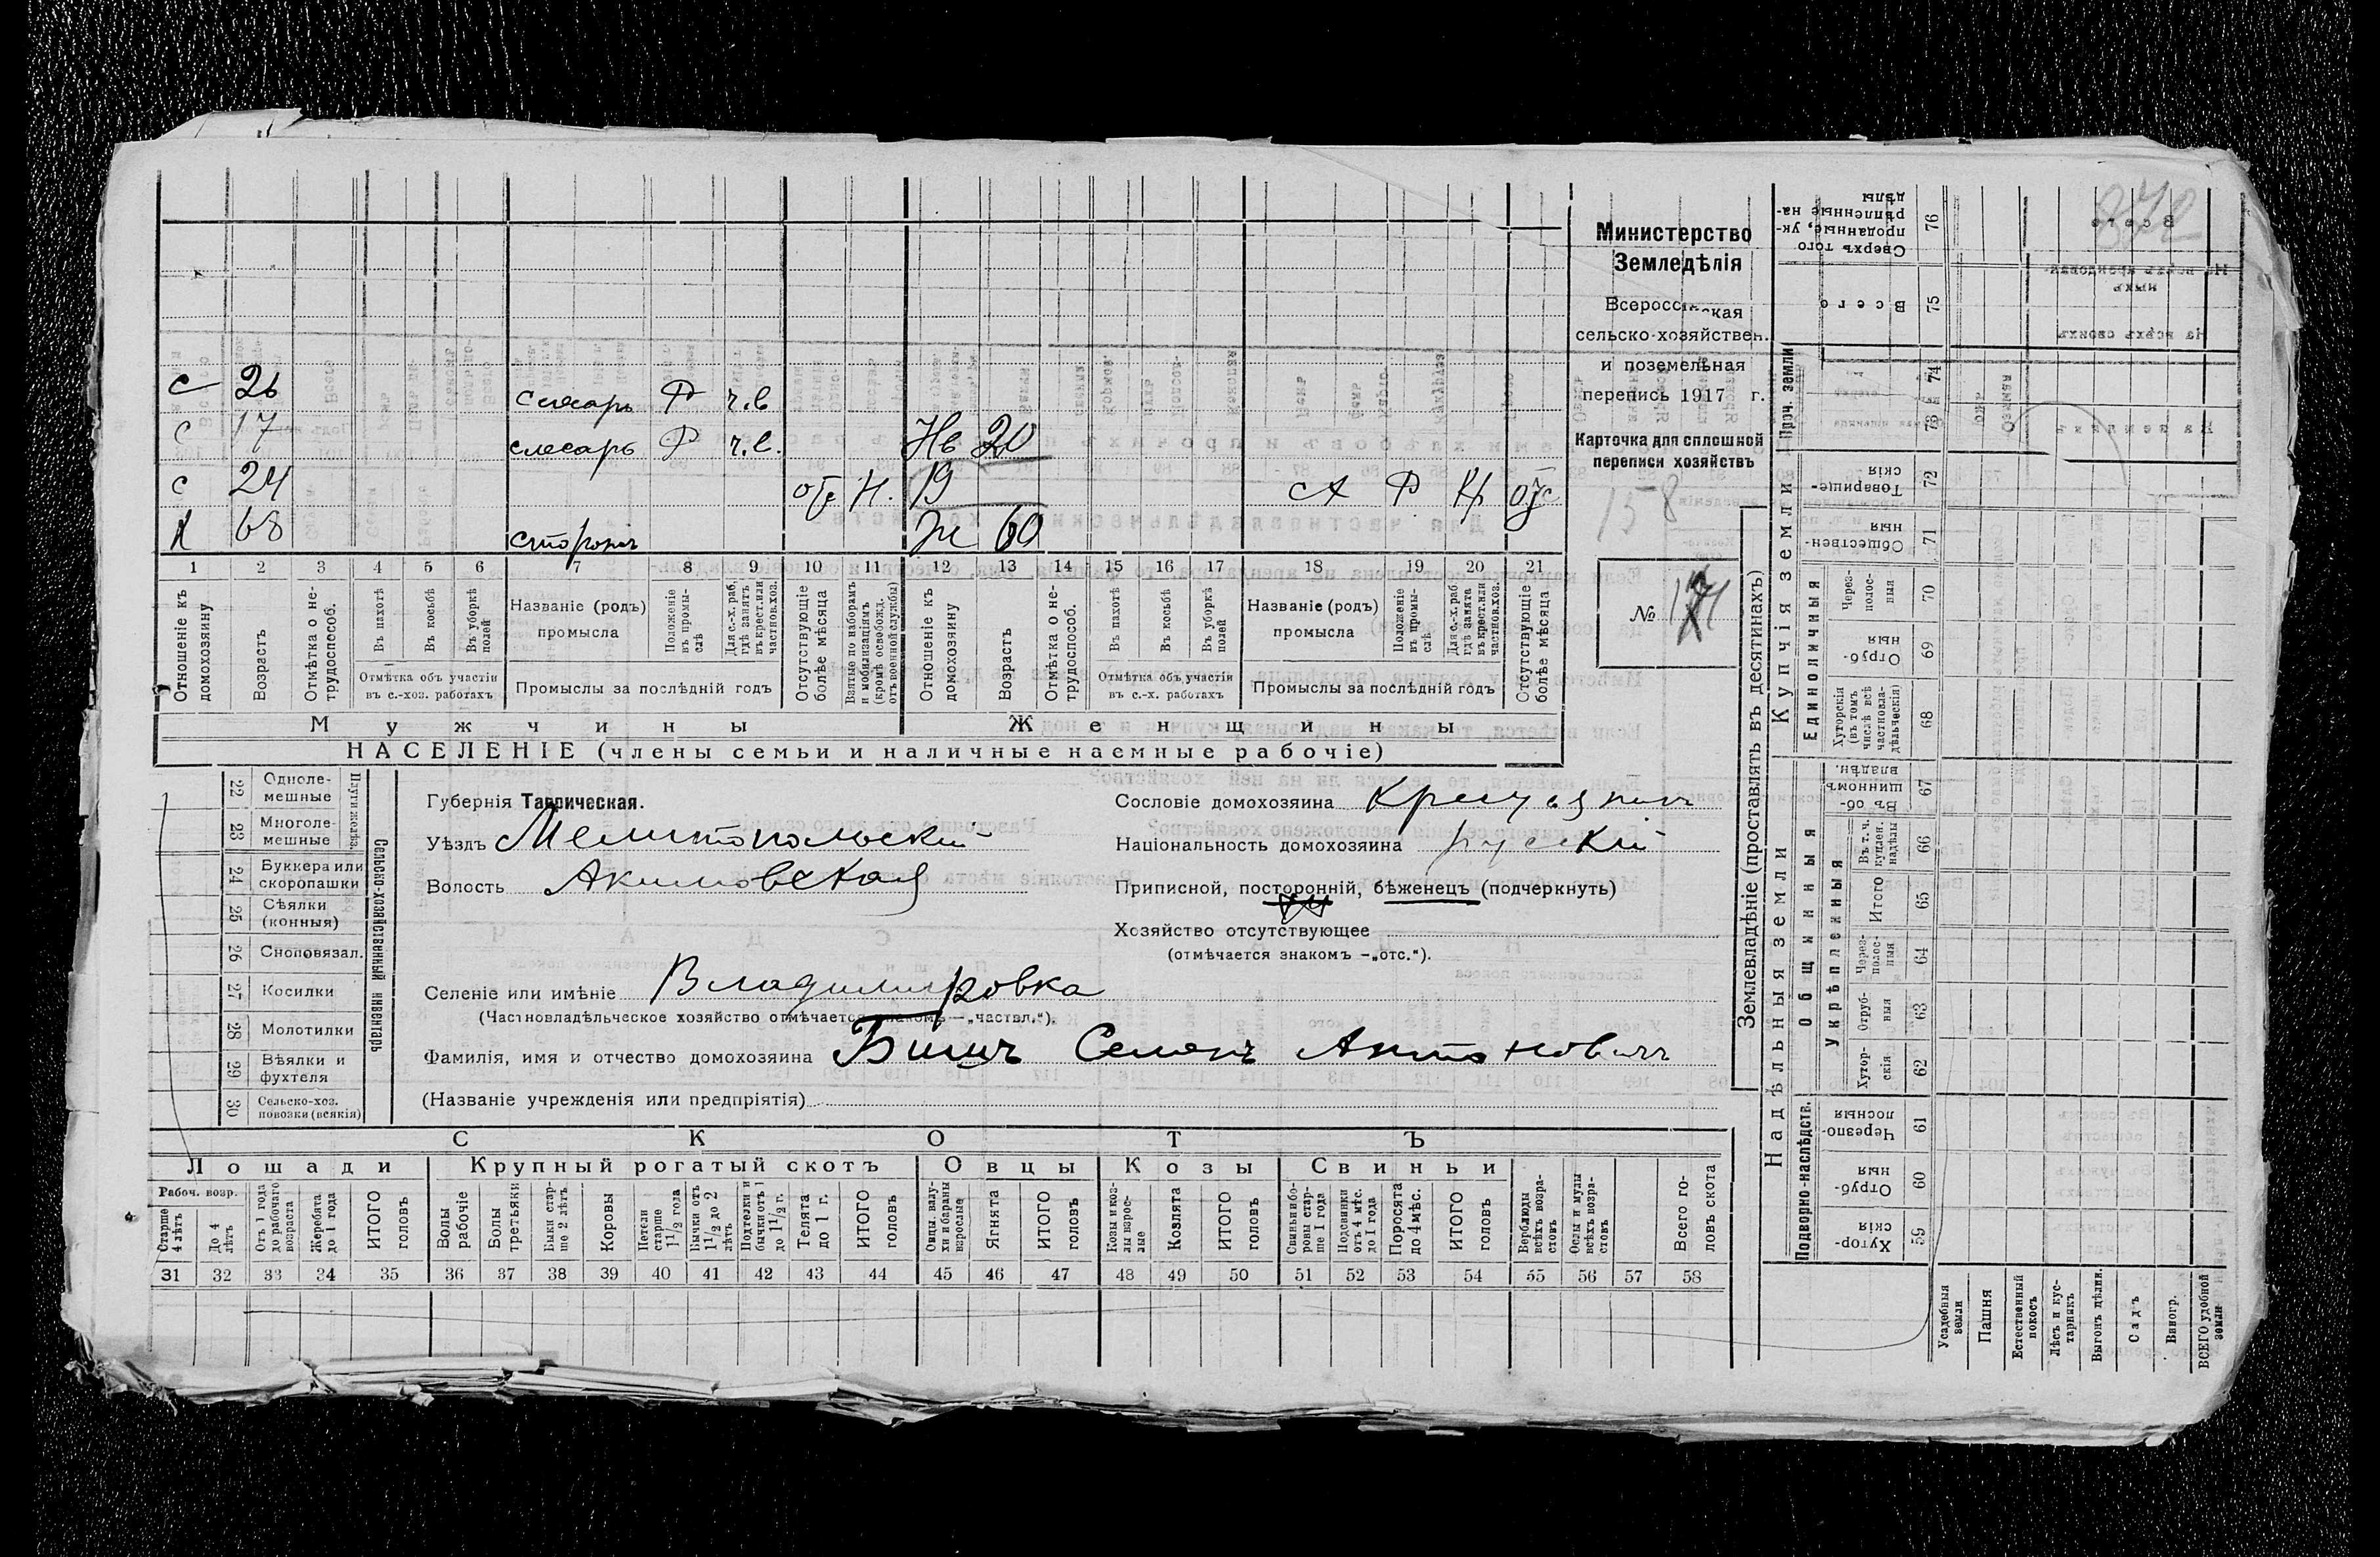 872
Министерство
Земледѣлія
Всероссійская
сельско-хозяйствен.
и поземельная
перепись 1917 г.
Карточка для сплошной
переписи хозяйствъ
158
№
С 26 слесарь Р ч.в
С 17 слесарь Р ч.в. Нв 20
С 24 Н. 19
Х 68 сторожъ Ж 60
1 2 3 4 5 6 7 8 9 10 11 12 13 14 15 16 17 18 19 20 21
Отношеніе къ домохозяину
Возрастъ
Отмѣтка о не-трудоспособ.
Въ пахотѣ
Въ косьбѣ
Въ уборкѣ полей
Отмѣтка объ участіи въ с.-хоз. работахъ
Названіе (родъ) промысла
Положеніе въ промы-слѣ
Для с.-х. раб, гдѣ занятъ въ крест. или частнов.хоз.
Промыслы за послѣдній годъ
Отсутствующіе болѣе мѣсяца
Взятые по наборамъ и мобилизаціямъ (кромѣ освобожд. отъ военной службы)
Отношеніе къ домохозяину
Возрастъ
Отмѣтка о не-трудоспособ.
Въ пахотѣ
Въ косьбѣ
Въ уборкѣ полей
Отмѣтка объ участіи въ с.-х. работахъ
Названіе (родъ) промысла
Положеніе въ промы-слѣ
Для с.-х. раб. гдѣ занята въ крест. или частнов.хоз.
Промыслы за послѣдній годъ
Отсутствующіе болѣе мѣсяца
Мужчины Женщины
НАСЕЛЕНІЕ (члены семьи и наличные наемные рабочіе)
22 Одноле-мешные
23 Многоле-мешные
24 Буккера или скоропашки
25 Сѣялки (конныя)
26 Сноповязал.
27 Косилки
28 Молотилки
29 Вѣялки и фухтеля
30 Сельско-хоз. повозки (всякія)
Плуги желѣзн.
Сельско-хозяйственный инвентарь
Губернія Таврическая.
Уѣздъ Мелитопольскій
Волость Акимовская
Сословіе домохозяина Крестьянинъ
Національность домохозяина русскій
Приписной, посторонній, бѣженецъ (подчеркнуть)
Хозяйство отсутствующее
(отмѣчается знакомъ -„отс.“).
Селеніе или имѣніе Владимировка
(Частновладѣльческое хозяйство отмѣчается знакомъ — „частвл.“).
Фамилія, имя и отчество домохозяина Семенъ Антоновичъ
(Названіе учрежденія или предпріятія)
СКОТЪ
Лошади Крупный рогатый скотъ Овцы Козы Свиньи
Рабоч. возр.
Старше 4 лѣтъ
До 4 лѣтъ
Отъ 1 года до рабочаго возраста
Жеребята до 1 года
ИТОГО головъ
Волы рабочіе
Волы третьяки
Быки стар-ше 2 лѣтъ
Коровы
Нетели старше 1 1/2 года
Бычки отъ 1 1/2 до 2 лѣтъ
Подтелки и бычки отъ 1 до 1 1/2 г.
Телята до 1 г.
ИТОГО головъ
Овцы, валу-хи и бараны взрослые
Ягнята
ИТОГО головъ
Козы и коз-лы взрос-лые
Козлята
ИТОГО головъ
Свиньи и бо-ровы стар-ше 1 года
Подсвинки отъ 4 мѣс. до 1 года
Поросята до 4 мѣс.
ИТОГО головъ
Верблюды всѣхъ возра-стовъ
Ослы и мулы всѣхъ возра-стовъ
Всего го-ловъ скота
31 32 33 34 35 36 37 38 39 40 41 42 43 44 45 46 47 48 49 50 51 52 53 54 55 56 57 58
Землевладѣніе (проставлять въ десятинахъ)
Надѣльныя земли
Купчія земли
Проч. земли
Подворно-наслѣдств.
Общинныя
Укрѣпленныя
Единоличныя
Сверхъ того проданные, ук-рѣпленные на-дѣлы 76
Всего 75
74
73
Товарище-скія 72
Обществен-ныя 71
Через-полос-ныя 70
Отруб-ныя 69
Хуторскія (въ томъ числѣ всѣ частновла-дѣльческія) 68
Въ об-щинномъ владѣн. 67
Въ т. ч. куплен. надѣлы 66
Итого 65
Через-полос-ныя 64
Отруб-ныя 63
Хутор-скія 62
Черезпо-лосныя 61
Отруб-ныя 60
Хутор-скія 59
Усадебныя земли
Пашня
Естественный покосъ
Лѣсъ и кус-тарникъ
Выгонъ цѣлин.
Садъ
Виногр.
ВСЕГО удобной земли